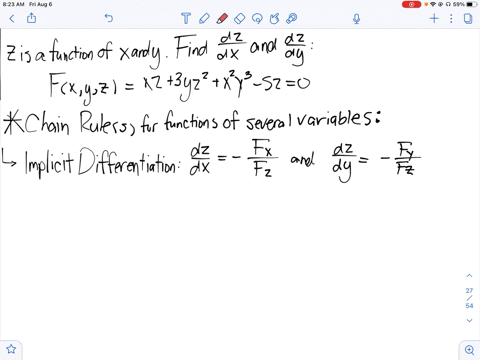 8:23 AM Fri Aug 6
59%
Z is a function of x and y. Find dz/dx and dz/dy:
F(x,y,z) = xz+3yz²+x²y³-5z=0
*Chain Rule(s) for functions of several variables:
↳ Implicit Differentiation: dz/dx = - Fx/Fz and dz/dy = - Fy/Fz
27
/
54